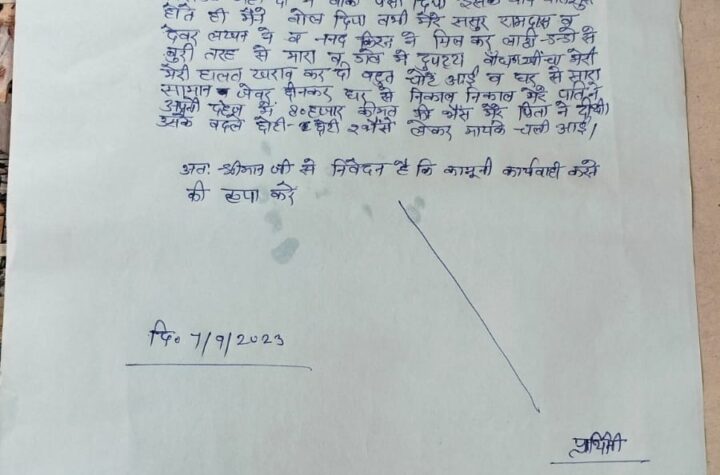 होते ही मैंने बोल दिया तभी मेरे ससुर रामदास व
देवर लखन ने व ननद किरन ने मिल कर लाठी-डन्डो से
बुरी तरह से मारा व गले मे दुपट्टा मेरी
मेरी हालत खराब कर दी बहुत चोटे आई व घर से सारा
सामान जेवर छीनकर घर से निकाल निकाल मेरे पति ने
में 80 हजार कीमत की भैंस मेरे पिता ने दी थी
उसके बदले छोटी-छोटी 2 भैंसे लेकर मायके चली आई।
अतः श्रीमान जी से निवेदन है कि कानूनी कार्यवाही करने
की कृपा करे
दि० 7/9/2023
प्रार्थिनी